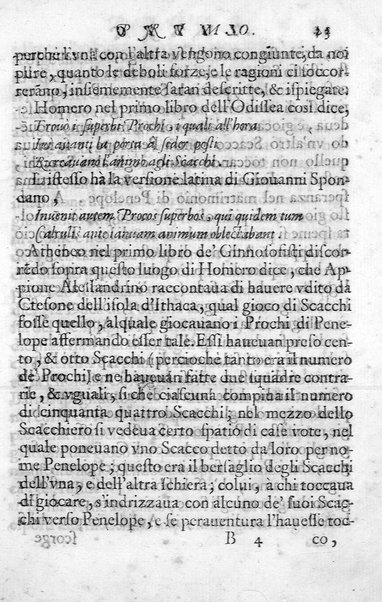 PRIMO. 23
perche l'vna com l'altra vengono congiunte, da noi
pure, quanto le deboli forze, e le ragioni ci soccor-
rerano, insiemente saran descritte, & ispiegate.
Homero nel primo libro dell'Odissea così dice,
Trouò i superbi Prochi, i quali all'hora
Ini auanti la porta à seder posti
Ricreauano l'animo agli Scacchi.
L'istesso hà la versione latina di Giouanni Spon
dano,
Inuenit autem Procos superbos, qui quidem tum
Calculis ante ianuam animum oblectabant.
Atheneo nel primo libro de' Ginnosofisti discor-
redo sopra questo luogo di Homero dice, che Ap
pione Alessandrino raccontaua di hauere vdito da
Ctesone dell'isola d'Ithaca, qual gioco di Scacchi
fosse quello, al quale giocauano i Prochi di Pene
lope affermando esser tale. Essi haueuan preso cen
to, & otto Scacchi (percioche tanto era il numero
de' Prochi) e ne haueuan fatte due squadre contra-
rie, & vguali, si che ciascuna compiua il numero
di cinquanta quattro Scacchi; nel mezzo dello
Scacchiero si vedeua certo spatio di case vote, nel
quale poneuano vno Scacco detto da loro per no
me Penelope; questo era il bersaglio degli Scacchi
dell'vna, e dell'altra schiera; colui, à chi toccaua
di giocare, s'indrizzaua con alcuno de' suoi Scac
chi verso Penelope, e se perauentura l'hauesse toc-
B 4 co,